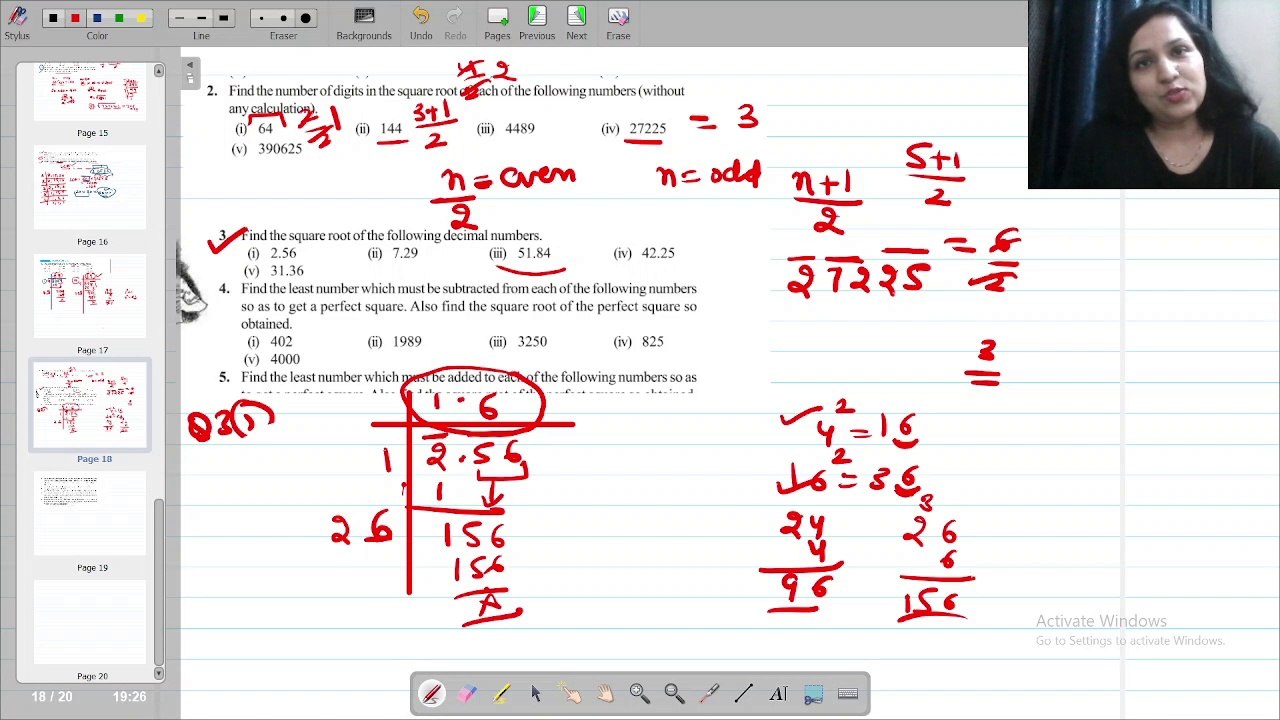 Stylus Color Line Eraser Backgrounds Undo Redo Pages Previous Next Erase
Page 15
Page 16
Page 17
Page 18
Page 19
Page 20
18 / 20 19:26
2. Find the number of digits in the square root each of the following numbers (without
any calculation).
(i) 64 (ii) 144 (iii) 4489 (iv) 27225 = 3
(v) 390625
2
3+1
2
n = even n = odd
n/2
n+1
2
5+1
2
2 72 25 = 6
2
3
3. Find the square root of the following decimal numbers.
(i) 2.56 (ii) 7.29 (iii) 51.84 (iv) 42.25
(v) 31.36
4. Find the least number which must be subtracted from each of the following numbers
so as to get a perfect square. Also find the square root of the perfect square so
obtained.
(i) 402 (ii) 1989 (iii) 3250 (iv) 825
(v) 4000
5. Find the least number which must be added to each of the following numbers so as
Q3(i)
1.6
1 2.56
1
26 156
156
4² = 16
6² = 36
24
4
96
3
26
6
156
Activate Windows
Go to Settings to activate Windows.